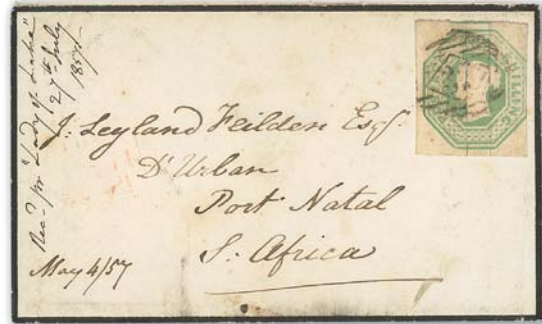 Recd pr "Lady of Lake"
27th July
1857
J. Leyland Feilden Esqr.
D'Urban
Port Natal
S. Africa
May 4/57
SHILLING